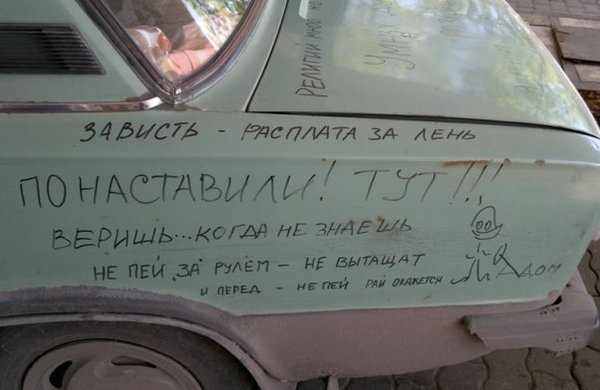 РЕЛИГИЙ МНОГО
ЗАВИСТЬ - РАСПЛАТА ЗА ЛЕНЬ
ПОНАСТАВИЛИ! ТУТ!!!
ВЕРИШЬ...КОГДА НЕ ЗНАЕШЬ
НЕ ПЕЙ ЗА РУЛЁМ - НЕ ВЫТАЩАТ
И ПЕРЕД - НЕ ПЕЙ РАЙ ОКАЖЕТСЯ АДОМ